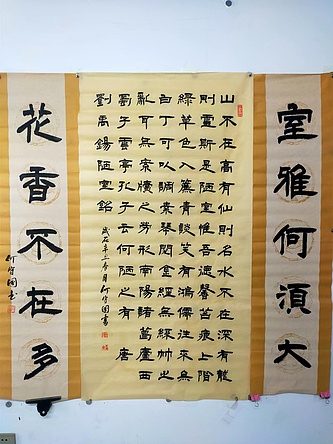 室雅何湏大
山不在高有仙則名水不在深有龍
則靈斯是陋室惟吾德馨苔痕上階
綠草色入簾青談笑有鴻儒往來無
白丁可以調素琴閱金經無絲竹之
亂耳無案牘之勞形南陽諸葛廬西
蜀子雲亭孔子云何陋之有 唐
劉禹錫陋室銘
花香不在多